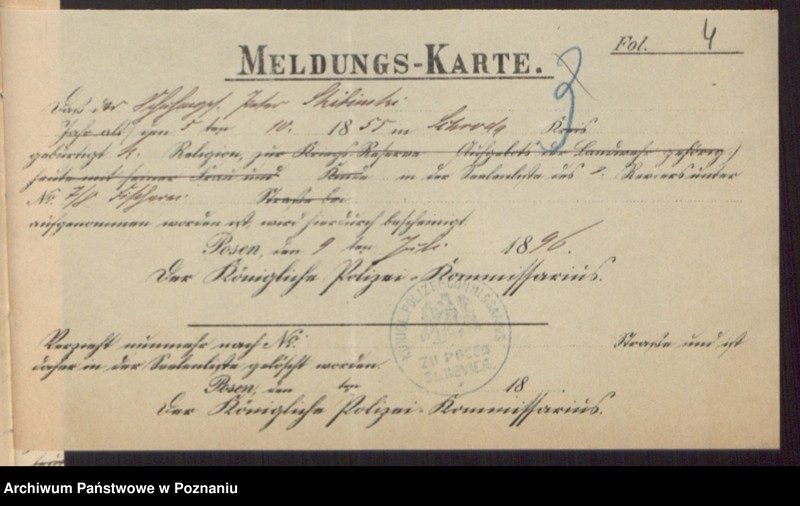 Fol. 4
MELDUNGS-KARTE.
3
Daß der Schuhmach. Peter Skibinski
Jahr alt) am 5 ten 10. 1855 in Schroda Kreis
gebürtig k. Religion, zur Kriegs-Reserve Aufgebots der Landwehr gehörig)
heute mit seiner Frau und Kinde in der Seelenliste des Reviers unter
No. 7/8 Fischerei Straße bei
aufgenommen worden ist, wird hierdurch bescheinigt.
Posen, den 9 ten Juli 1896.
Der Königliche Polizei-Kommissarius.
KÖNIGL. POLIZEI-COMMISSARIUS
ZU POSEN
REVIER.
Verzieht nunmehr nach No. Straße und ist
daher in der Seelenliste gelöscht worden.
Posen, den ten 18
Der Königliche Polizei-Kommissarius.
Archiwum Państwowe w Poznaniu